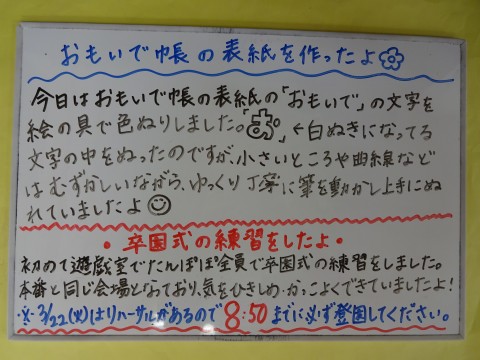 おもいで帳の表紙を作ったよ
今日はおもいで帳の表紙の「おもいで」の文字を
絵の具で色ぬりしました。「お」←白ぬきになってる
文字の中をぬったのですが、小さいところや曲線など
はむずかしいながら、ゆっくり丁寧に筆を動かし上手にぬ
れていましたよ
・卒園式の練習をしたよ・
初めて遊戯室でたんぽぽ全員で卒園式の練習をしました。
本番と同じ会場となっており、気をひきしめ・かっこよくできていましたよ!
※3/22(火)はリハーサルがあるので8:50までに必ず登園してください。